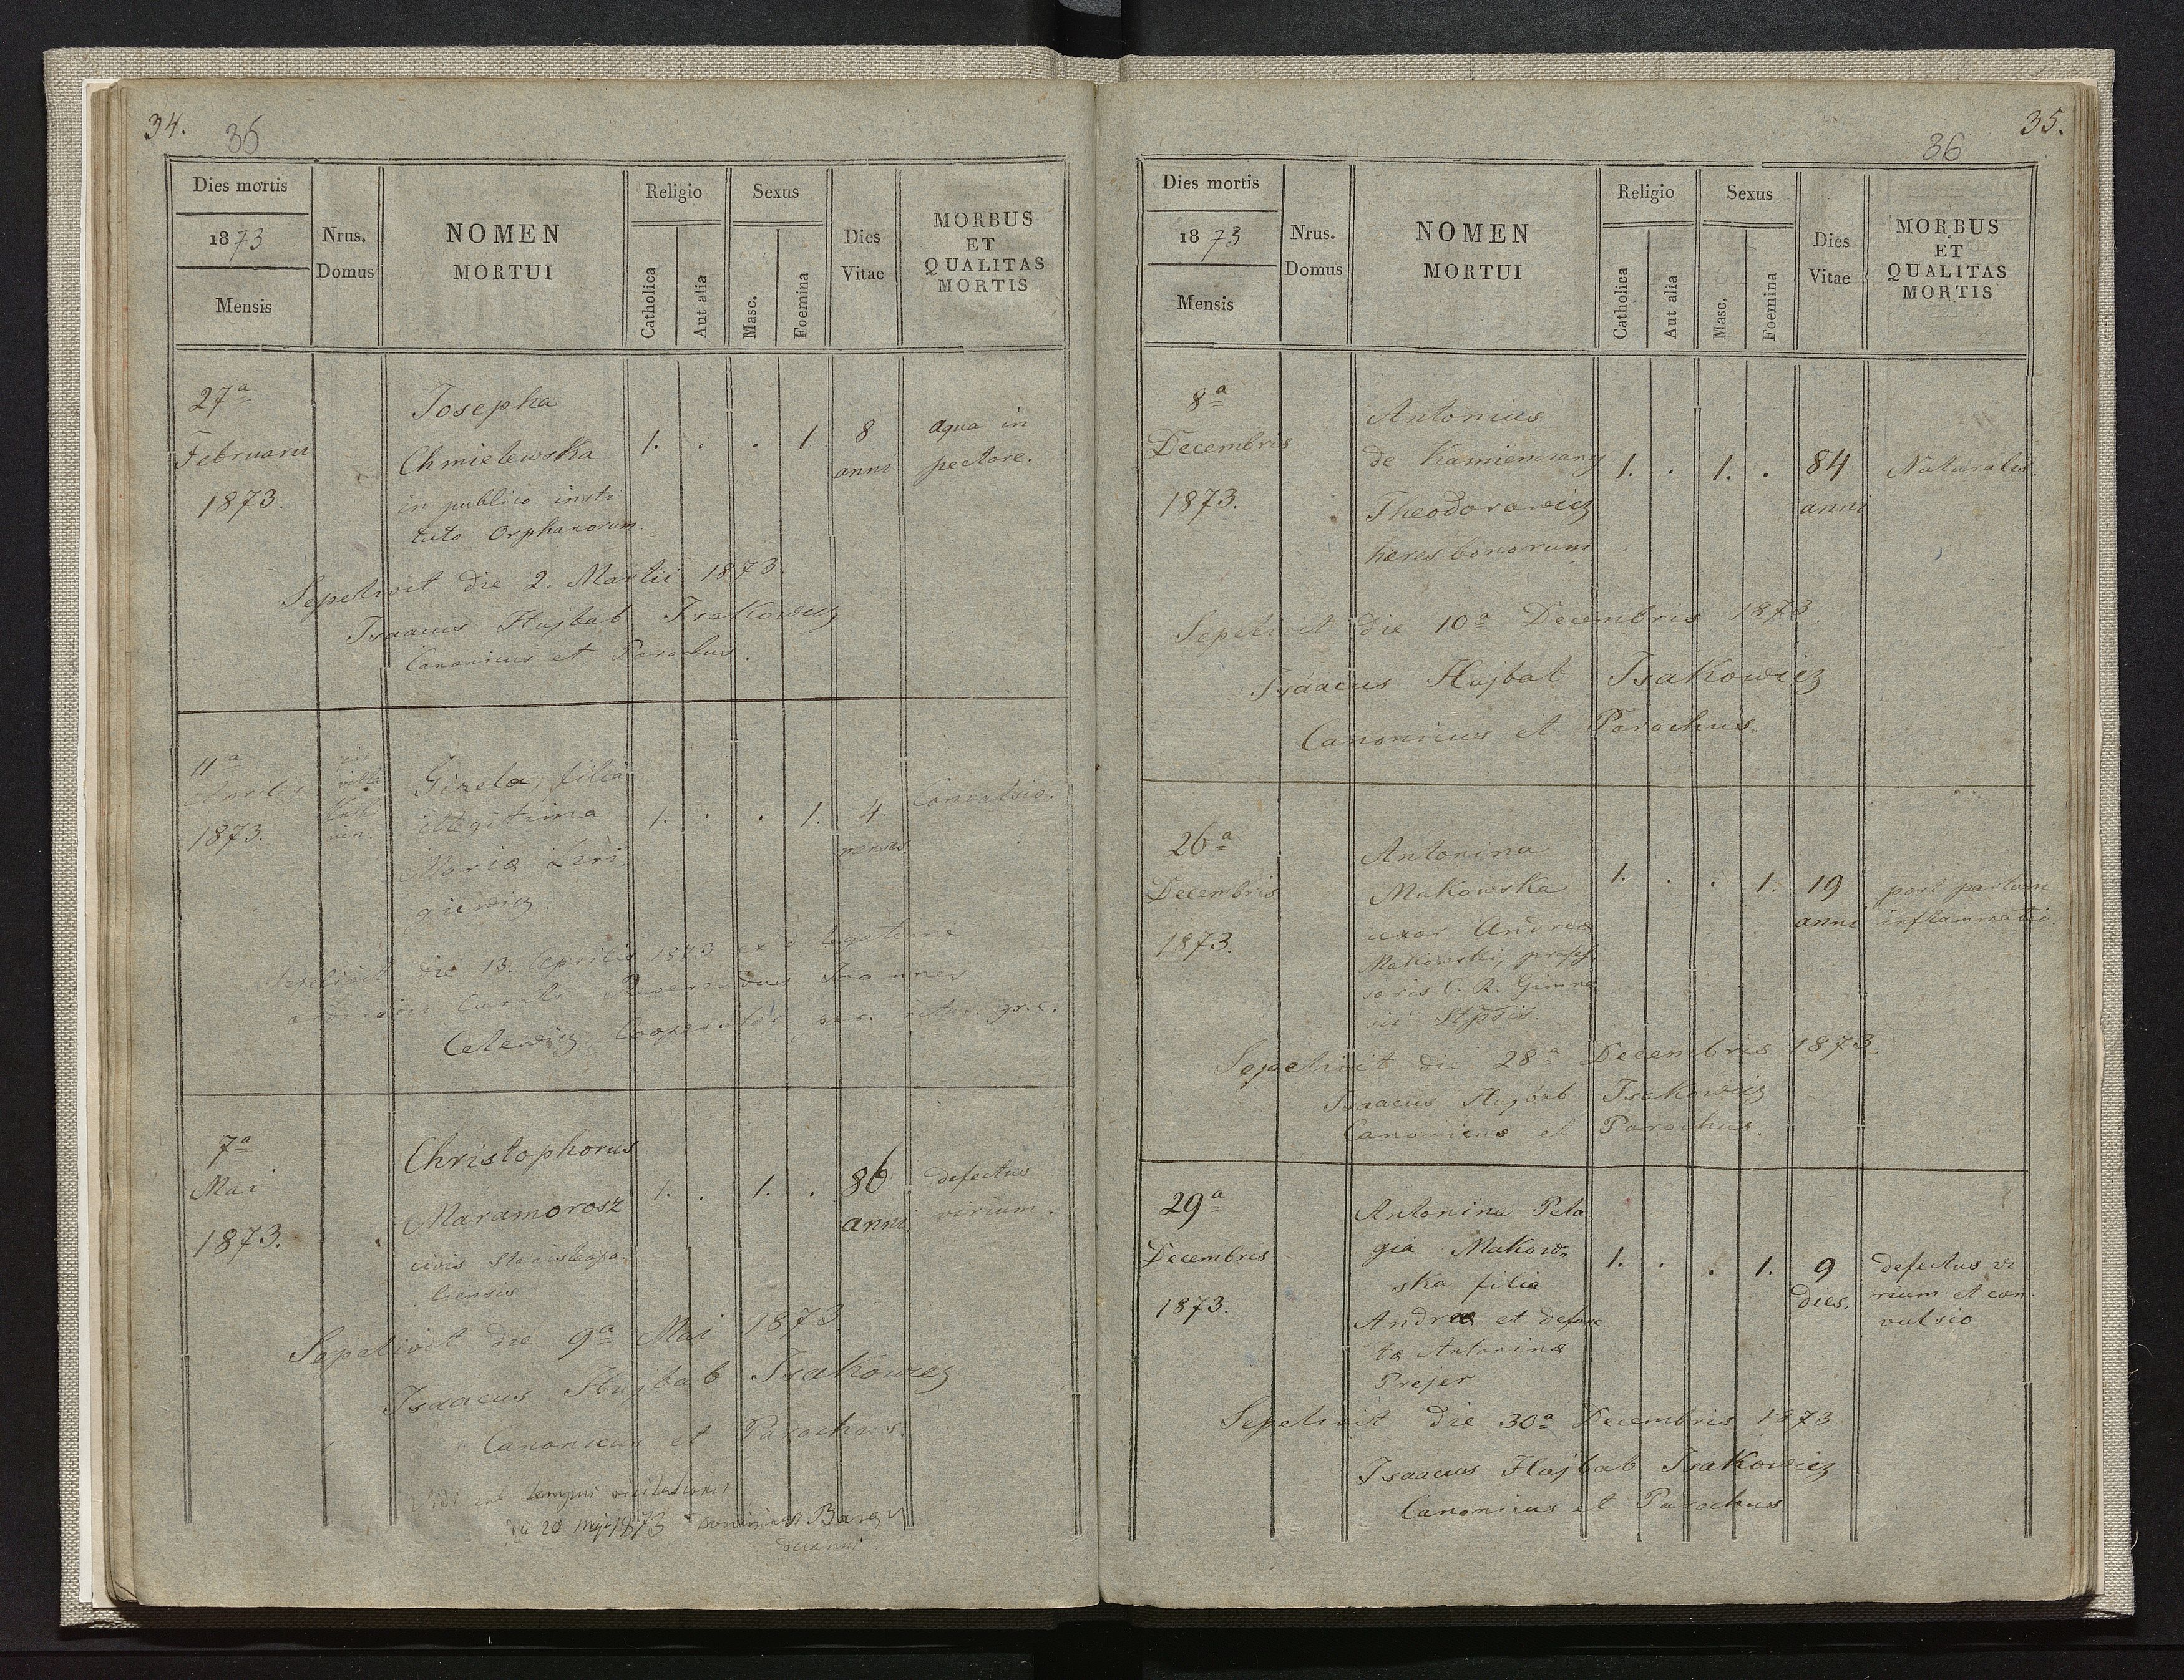 34.
35
Dies mortis
1873
Mensis
Nrus.
Domus
NOMEN
MORTUI
Religio
Catholica
Aut alia
Sexus
Masc.
Foemina
Dies
Vitae
MORBUS
ET
QUALITAS
MORTIS
27ª
Februarii
1873.
Josepha
Chmielewska
in publico insti
tuto Orphanorum
1. . . 1
8
anni
aqua in
pectore.
Sepelivit die 2. Martii 1873.
Isaacus Hajbab Isakowicz
Canonicus et Parochus.
11ª
Aprilis
1873.
in
villa
Gizela, filia
illegitima
Mariæ
1. . . 1.
4
menses
Convulsio.
Sepelivit die 13. Aprilis 1873
Reverendus Joannes
Celewicz Cooperator gr. c.
7ª
Mai
1873.
Christophorus
Maramorosz
civis Stanislaopo
liensis
1. . 1. .
86
anni
defectus
virium.
Sepelivit die 9ª Mai 1873
Isaacus Hajbab Isakowicz
Canonicus et Parochus.
Vidi sub tempus visitationis
die 20 Maji 1873
35.
36
Dies mortis
1873
Mensis
Nrus.
Domus
NOMEN
MORTUI
Religio
Catholica
Aut alia
Sexus
Masc.
Foemina
Dies
Vitae
MORBUS
ET
QUALITAS
MORTIS
8ª
Decembris
1873.
Antonius
de
Theodorowicz
hæres bonorum
1. . 1. .
84
anni
Naturalis.
Sepelivit die 10ª Decembris 1873.
Isaacus Hajbab Isakowicz
Canonicus et Parochus.
26ª
Decembris
1873.
Antonina
Makowska
uxor Andreæ
Makowski, profes
soris C. R. Gimna
sii
1. . . 1.
19
anni
post partum
inflammatio.
Sepelivit die 28ª Decembris 1873.
Isaacus Hajbab Isakowicz
Canonicus et Parochus.
29ª
Decembris
1873.
Antonina Pela
gia Makow„
ska filia
Andreæ et defunc
tæ Antoninæ
Prejer
1. . . 1.
9
Dies.
defectus vi
rium et con
vulsio
Sepelivit die 30ª Decembris 1873
Isaacus Hajbab Isakowicz
Canonicus et Parochus